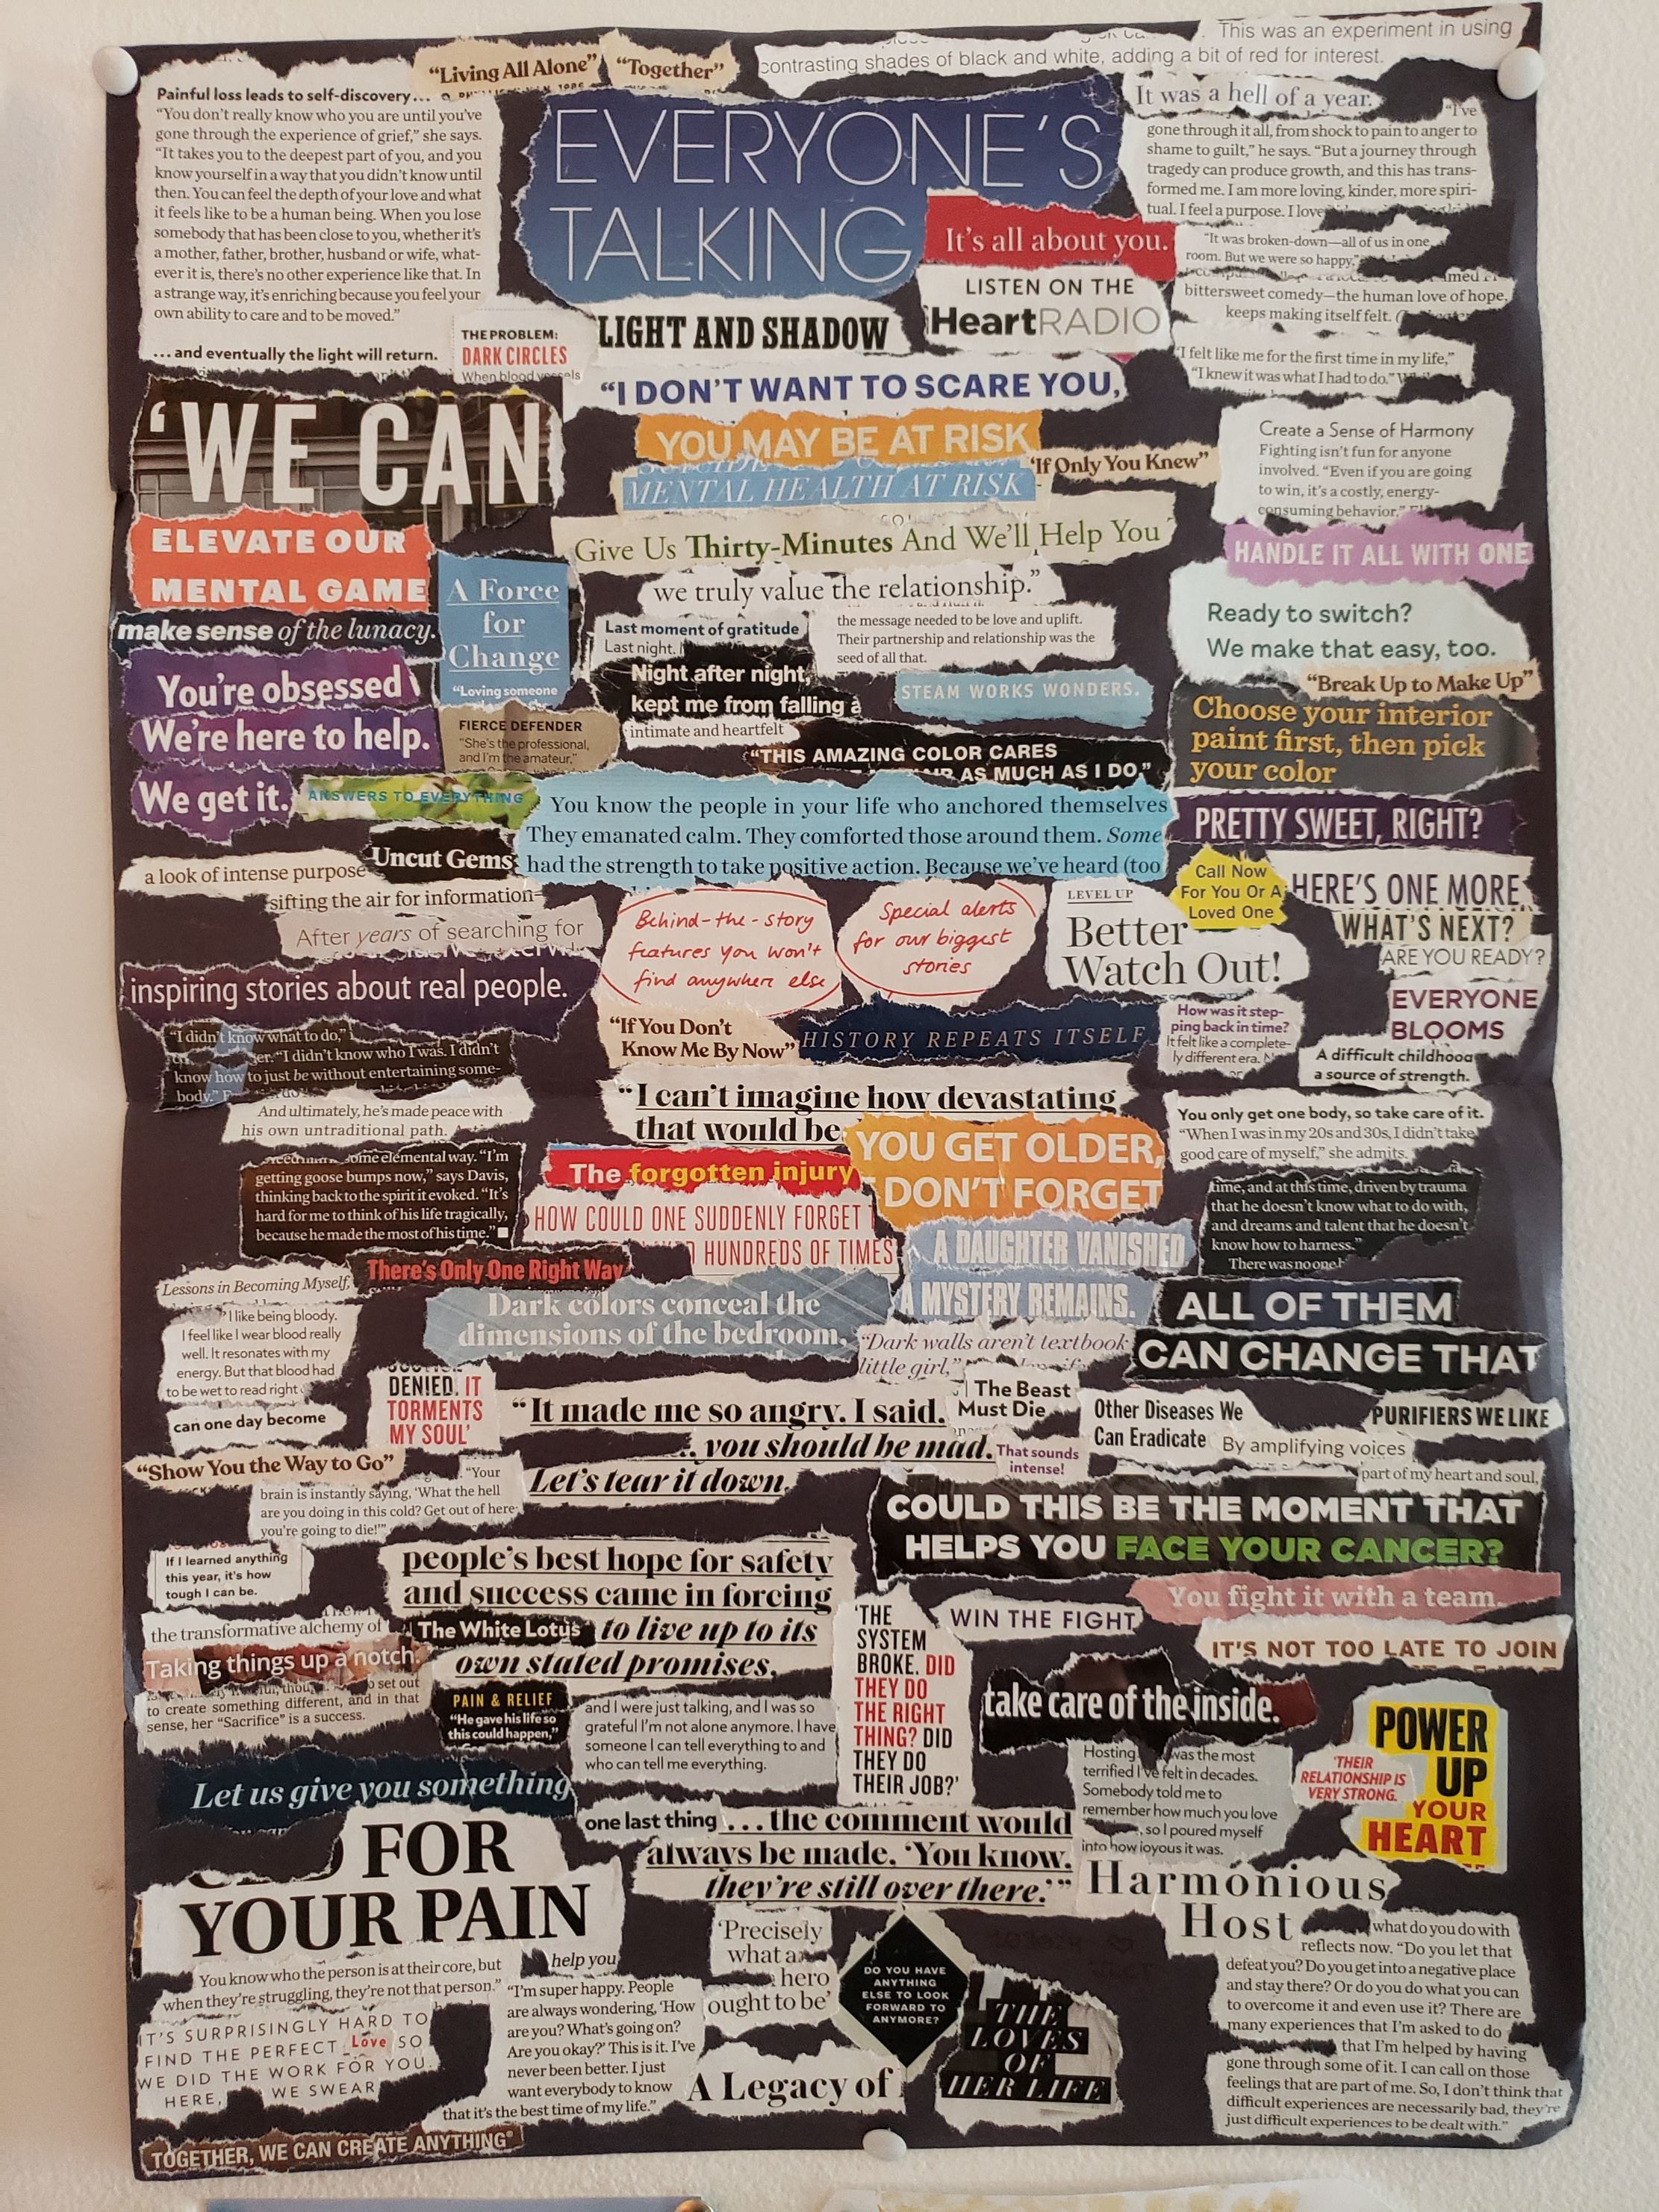 This was an experiment in using
contrasting shades of black and white, adding a bit of red for interest.
“Living All Alone”
“Together”
Painful loss leads to self-discovery…
“You don’t really know who you are until you’ve
gone through the experience of grief,” she says.
“It takes you to the deepest part of you, and you
know yourself in a way that you didn’t know until
then. You can feel the depth of your love and what
it feels like to be a human being. When you lose
somebody that has been close to you, whether it’s
a mother, father, brother, husband or wife, what-
ever it is, there’s no other experience like that. In
a strange way, it’s enriching because you feel your
own ability to care and to be moved.”
…and eventually the light will return.
THE PROBLEM:
DARK CIRCLES
When blood vessels
EVERYONE’S
TALKING
It’s all about you.
LISTEN ON THE
iHeartRADIO
LIGHT AND SHADOW
It was a hell of a year.
“I’ve
gone through it all, from shock to pain to anger to
shame to guilt,” he says. “But a journey through
tragedy can produce growth, and this has trans-
formed me. I am more loving, kinder, more spiri-
tual. I feel a purpose. I love
“It was broken-down—all of us in one
room. But we were so happy,”
bittersweet comedy—the human love of hope,
keeps making itself felt.
“I felt like me for the first time in my life,”
“I knew it was what I had to do.”
“I DON’T WANT TO SCARE YOU,
YOU MAY BE AT RISK
MENTAL HEALTH AT RISK
“If Only You Knew”
Give Us Thirty-Minutes And We’ll Help You
we truly value the relationship.”
‘WE CAN
ELEVATE OUR
MENTAL GAME
make sense of the lunacy.
A Force
for
Change
“Loving someone
You’re obsessed
We’re here to help.
We get it.
FIERCE DEFENDER
“She’s the professional,
and I’m the amateur,”
ANSWERS TO EVERYTHING
Last moment of gratitude
Last night.
the message needed to be love and uplift.
Their partnership and relationship was the
seed of all that.
Night after night,
kept me from falling a
intimate and heartfelt
STEAM WORKS WONDERS.
“THIS AMAZING COLOR CARES
AS MUCH AS I DO,”
Create a Sense of Harmony
Fighting isn’t fun for anyone
involved. “Even if you are going
to win, it’s a costly, energy-
consuming behavior.”
HANDLE IT ALL WITH ONE
Ready to switch?
We make that easy, too.
“Break Up to Make Up”
Choose your interior
paint first, then pick
your color
PRETTY SWEET, RIGHT?
You know the people in your life who anchored themselves
They emanated calm. They comforted those around them. Some
had the strength to take positive action. Because we’ve heard (too
Uncut Gems
a look of intense purpose
sifting the air for information
After years of searching for
inspiring stories about real people.
Behind-the-story
features you won’t
find anywhere else
Special alerts
for our biggest
stories
LEVEL UP
Better
Watch Out!
Call Now
For You Or A
Loved One
HERE’S ONE MORE
WHAT’S NEXT?
ARE YOU READY?
EVERYONE
BLOOMS
A difficult childhood
a source of strength.
“I didn’t know what to do,”
“I didn’t know who I was. I didn’t
know how to just be without entertaining some-
body.”
And ultimately, he’s made peace with
his own untraditional path.
“If You Don’t
Know Me By Now”
HISTORY REPEATS ITSELF
How was it step-
ping back in time?
It felt like a complete-
ly different era.
“I can’t imagine how devastating
that would be
You only get one body, so take care of it.
“When I was in my 20s and 30s, I didn’t take
good care of myself,” she admits.
some elemental way. “I’m
getting goose bumps now,” says Davis,
thinking back to the spirit it evoked. “It’s
hard for me to think of his life tragically,
because he made the most of his time.”
The forgotten injury
YOU GET OLDER,
DON’T FORGET
HOW COULD ONE SUDDENLY FORGET
HUNDREDS OF TIMES
A DAUGHTER VANISHED
A MYSTERY REMAINS.
time, and at this time, driven by trauma
that he doesn’t know what to do with,
and dreams and talent that he doesn’t
know how to harness.”
There was no one
Lessons in Becoming Myself,
There’s Only One Right Way
Dark colors conceal the
dimensions of the bedroom.
“Dark walls aren’t textbook
little girl,”
ALL OF THEM
CAN CHANGE THAT
I like being bloody.
I feel like I wear blood really
well. It resonates with my
energy. But that blood had
to be wet to read right
can one day become
DENIED. IT
TORMENTS
MY SOUL’
“It made me so angry. I said,
you should be mad.
Let’s tear it down.
The Beast
Must Die
That sounds
intense!
Other Diseases We
Can Eradicate
PURIFIERS WE LIKE
By amplifying voices
part of my heart and soul,
“Show You the Way to Go”
“Your
brain is instantly saying, ‘What the hell
are you doing in this cold? Get out of here;
you’re going to die!’”
COULD THIS BE THE MOMENT THAT
HELPS YOU FACE YOUR CANCER?
You fight it with a team.
WIN THE FIGHT
IT’S NOT TOO LATE TO JOIN
If I learned anything
this year, it’s how
tough I can be.
people’s best hope for safety
and success came in forcing
to live up to its
own stated promises.
the transformative alchemy of
The White Lotus
Taking things up a notch.
set out
to create something different, and in that
sense, her “Sacrifice” is a success.
PAIN & RELIEF
“He gave his life so
this could happen,”
and I were just talking, and I was so
grateful I’m not alone anymore. I have
someone I can tell everything to and
who can tell me everything.
‘THE
SYSTEM
BROKE. DID
THEY DO
THE RIGHT
THING? DID
THEY DO
THEIR JOB?’
take care of the inside.
Hosting was the most
terrified I’ve felt in decades.
Somebody told me to
remember how much you love
, so I poured myself
into how joyous it was.
‘THEIR
RELATIONSHIP IS
VERY STRONG.
POWER
UP
YOUR
HEART
Let us give you something
FOR
YOUR PAIN
one last thing
…the comment would
always be made, ‘You know,
they’re still over there.’”
Harmonious
Host
You know who the person is at their core, but
when they’re struggling, they’re not that person.”
help you
IT’S SURPRISINGLY HARD TO
FIND THE PERFECT Love SO
WE DID THE WORK FOR YOU.
HERE, WE SWEAR
“I’m super happy. People
are always wondering, ‘How
are you? What’s going on?
Are you okay?’ This is it. I’ve
never been better. I just
want everybody to know
that it’s the best time of my life.”
‘Precisely
what a
hero
ought to be’
DO YOU HAVE
ANYTHING
ELSE TO LOOK
FORWARD TO
ANYMORE?
A Legacy of
THE
LOVES
OF
HER LIFE
what do you do with
reflects now. “Do you let that
defeat you? Do you get into a negative place
and stay there? Or do you do what you can
to overcome it and even use it? There are
many experiences that I’m asked to do
that I’m helped by having
gone through some of it. I can call on those
feelings that are part of me. So, I don’t think that
difficult experiences are necessarily bad, they’re
just difficult experiences to be dealt with.”
TOGETHER, WE CAN CREATE ANYTHING